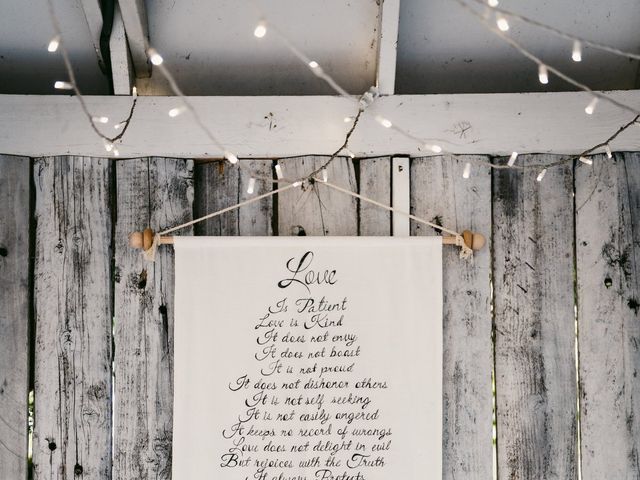 Love
Is Patient
Love is Kind
It does not envy
It does not boast
It is not proud
It does not dishonor others
It is not self seeking
It is not easily angered
It keeps no record of wrongs
Love does not delight in evil
But rejoices with the Truth
It always Protects